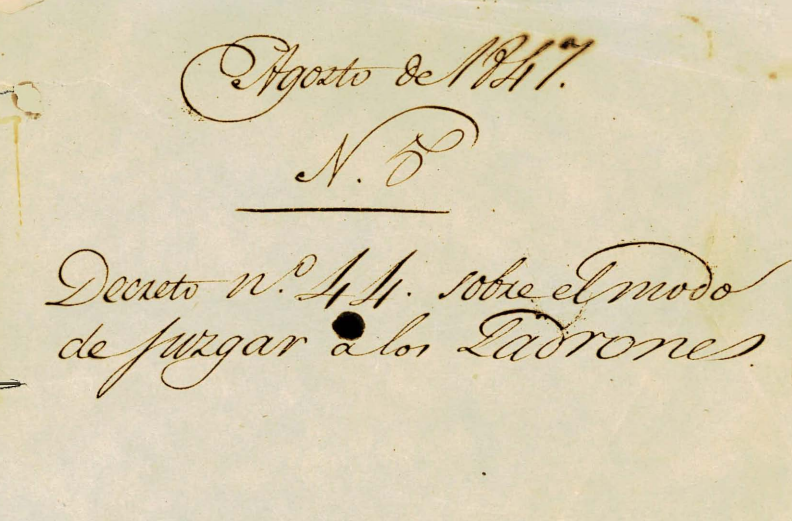 Agosto de 1847.
N. 5
Decreto n.º 44. sobre el modo
de juzgar a los Ladrones.